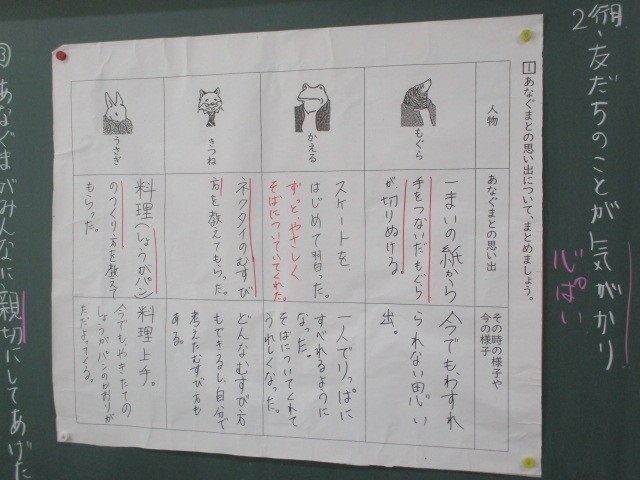 2行目、友だちのことが気がかり
心ぱい
1 あなぐまとの思い出について、まとめましょう。
人物
あなぐまとの思い出
その時の様子や
今の様子
もぐら
一まいの紙から
手をつないだもぐら
が、切りぬける。
今でもわすれ
られない思い
出。
かえる
スケートを
はじめて習った。
ずっと、やさしく
そばについていてくれた。
一人でりっぱに
すべれるように
なった。
そばについてくれて
うれしくなった。
きつね
ネクタイのむすび
方を教えてもらった。
どんなむすび方
もできるし、自分で
考えたむすび方も
ある。
うさぎ
料理(しょうがパン)
のつくり方を教えて
もらった。
料理上手。
今でもやきたての
しょうがパンのかおりが
ただよってくる。
③あなぐまがみんなに親切にしてあげた